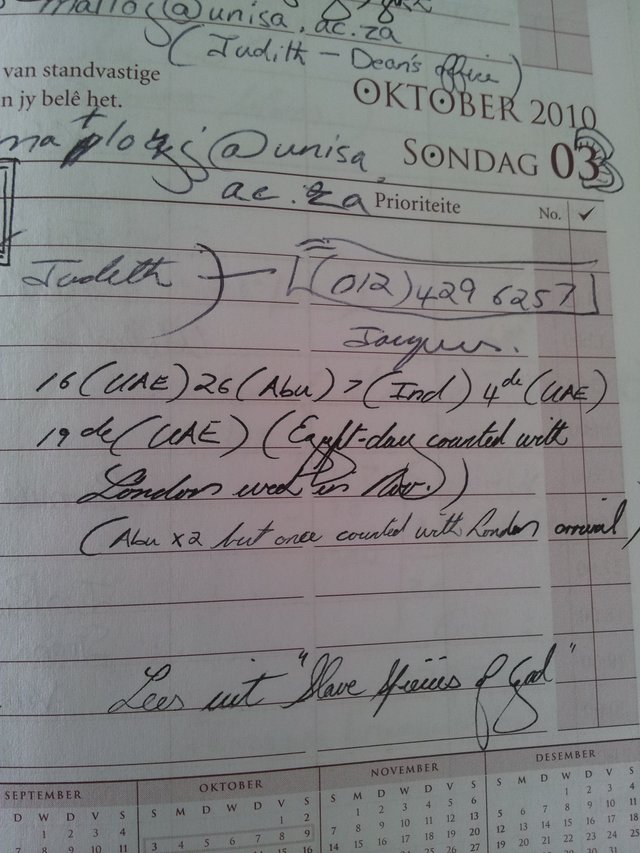 malloj@unisa.ac.za
(Judith – Dean's office)
van standvastige
n jy belê het.
OKTOBER 2010
SONDAG 03
@unisa.
ac.za
Prioriteite No. ✓
Judith ) – (012) 429 6257
Jacques.
16 (UAE) 26 (Abu) 7 (Ind) 4de (UAE)
19 de (UAE) (Egypt-day counted with
London wed in Nov.))
(Abu x2 but once counted with London arrival)
Lees uit "Slave of God"
SEPTEMBER
D W D V S
1 2 3 4
7 8 9 10 11
OKTOBER
S M D W D V S
1 2
3 4 5 6 7 8 9
16
NOVEMBER
S M D W D V S
1 2 3 4 5 6
7 8 9 10 11 12 13
14 15 16 17 18 19 20
DESEMBER
S M D W D V S
1 2 3 4
5 6 7 8 9 10 11
12 13 14 15 16 17 18
19 20 21 22 23 24 25